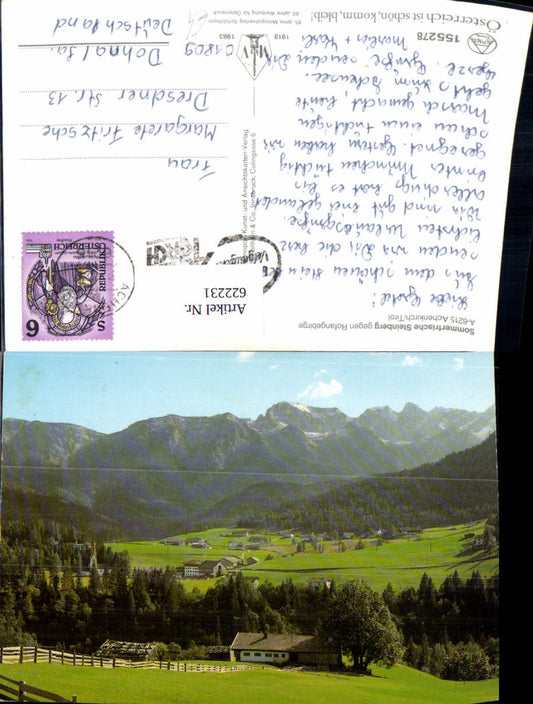 Sommerfrische Steinberg gegen Rofangebirge
A-6215 Achenkirch/Tirol
Liebe Gretel!
Aus dem schönen Steinberg
senden wir Dir die herz-
lichsten Urlaubsgrüße.
Wir sind gut hier gelandet
allerdings hat es bis
hinter München tüchtig
geregnet. Gestern haben wir
schon einen tüchtigen
Marsch gemacht, heute
geht's zum Achensee.
Herzl. Grüße senden Dir
155278
Österreich ist schön, komm, bleib!
65 Jahre Monopolverlag Schöllhorn
65 Jahre Werbung für Österreich
1918
1983
MV
Kunst- und Ansichtskarten-Verlag
& Co., Innsbruck, Colingasse 6
REPUBLIK
ÖSTERREICH
S 6
Frau
Margarete Fritzsche
Dresdner Str. 13
01809 Dohna/Sa.
Deutschland
Artikel Nr.
622231